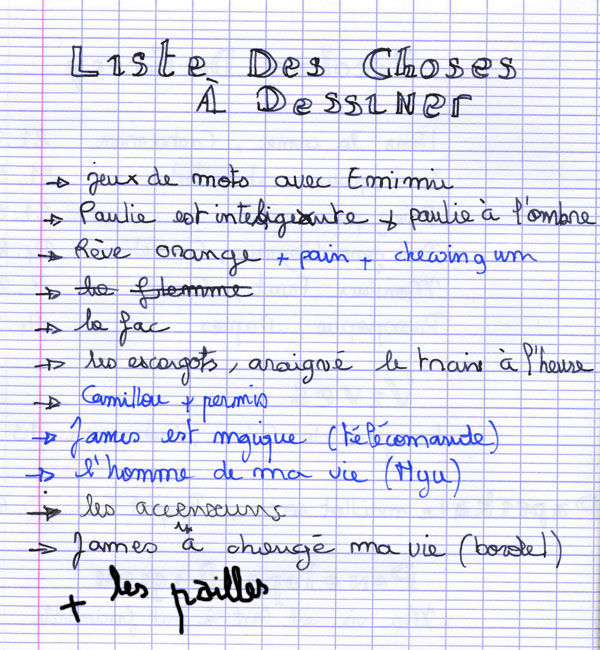 Liste Des Choses
À Dessiner
→ jeux de mots avec Emimiu
→ Paulie est inteligente + paulie à l'ombre
→ Rêve orange + pain + chewingum
→ la flemme
→ la fac
→ les escargots, araigné le train à l'heure
→ Camillou + permis
→ James est mgique (télécomande)
→ l'homme de ma vie (Myu)
→ les accenseurs
→ James à changé ma vie (bordel)
+ les pailles